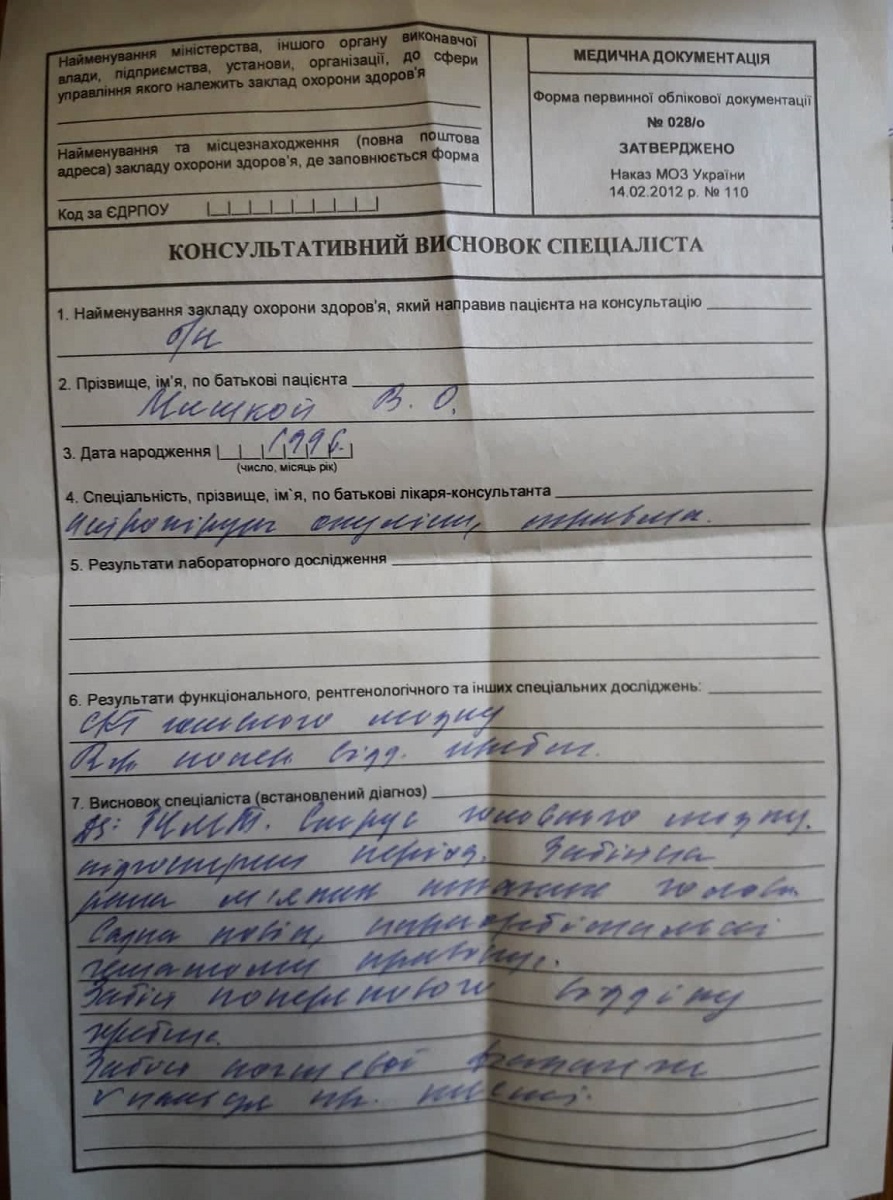 Найменування міністерства, іншого органу виконавчої
влади, підприємства, установи, організації, до сфери
управління якого належить заклад охорони здоров'я
Найменування та місцезнаходження (повна поштова
адреса) закладу охорони здоров'я, де заповнюється форма
Код за ЄДРПОУ
МЕДИЧНА ДОКУМЕНТАЦІЯ
Форма первинної облікової документації
№ 028/о
ЗАТВЕРДЖЕНО
Наказ МОЗ України
14.02.2012 р. № 110
КОНСУЛЬТАТИВНИЙ ВИСНОВОК СПЕЦІАЛІСТА
1. Найменування закладу охорони здоров'я, який направив пацієнта на консультацію
б/н
2. Прізвище, ім'я, по батькові пацієнта
В. О.
3. Дата народження 199
(число, місяць рік)
4. Спеціальність, прізвище, ім`я, по батькові лікаря-консультанта
травма.
5. Результати лабораторного дослідження
6. Результати функціонального, рентгенологічного та інших спеціальних досліджень:
СКТ головного мозку
попер. відд. хребта.
7. Висновок спеціаліста (встановлений діагноз)
Ds: ЗЧМТ. Струс головного мозку,
підгострий період. Забійна
рана м'яких тканин голови.
Садна лобія, параорбітальні
гематоми праворуч.
Забій поперекового відділу
хребта.
Забій нігтьової фаланги
V пальця пр. кисті.